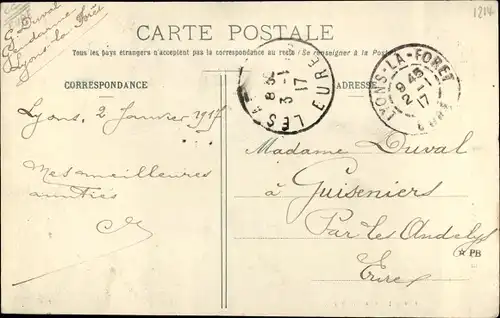 G Duval
Gendarme
Lyons-la Forêt
1214
CARTE POSTALE
Tous les pays étrangers n'acceptent pas la correspondance au recto (Se renseigner à la Poste)
CORRESPONDANCE
ADRESSE
LES A
EURE
8 35
3 -1
17
LYONS-LA-FORET
EURE
9 45
2 -1
17
Lyons, 2 Janvier 1917
Mes meilleures
amitiés
Madame Duval
à Guiseniers
Par les Andelys
Eure
☆ PB